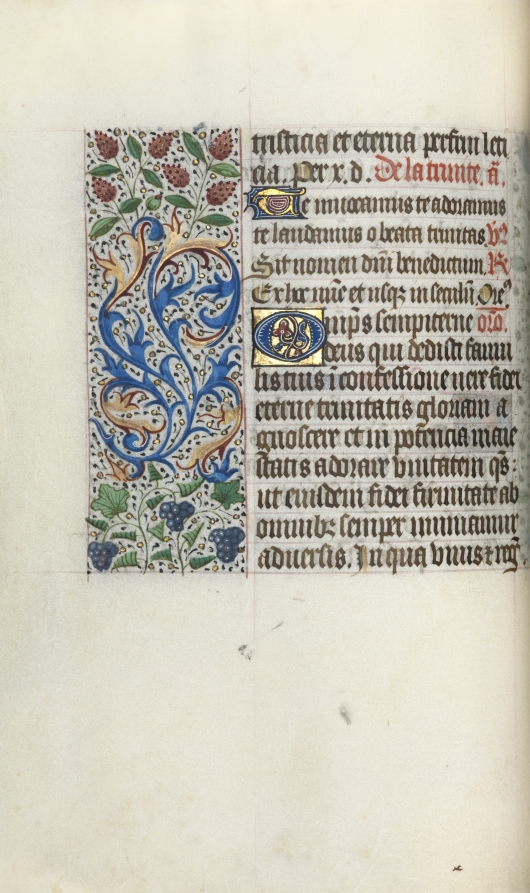 tristicia et eterna perfrui leti
cia. Per x. d. De la trinite. a.
Te inuocamus te adoramus
te laudamus o beata trinitas. V9
Sit nomen dni benedictum. R
Ex hoc nunc et usq; in seculu. Ore9
Omps sempiterne oro.
deus qui dedisti famu
lis tuis i confessione uere fidei
eterne trinitatis gloriam a
gnoscere et in potencia maie
statis adorare vnitatem qs:
ut eiusdem fidei firmitate ab
omnibz semper muniamur
aduersis. In qua viuis z reg